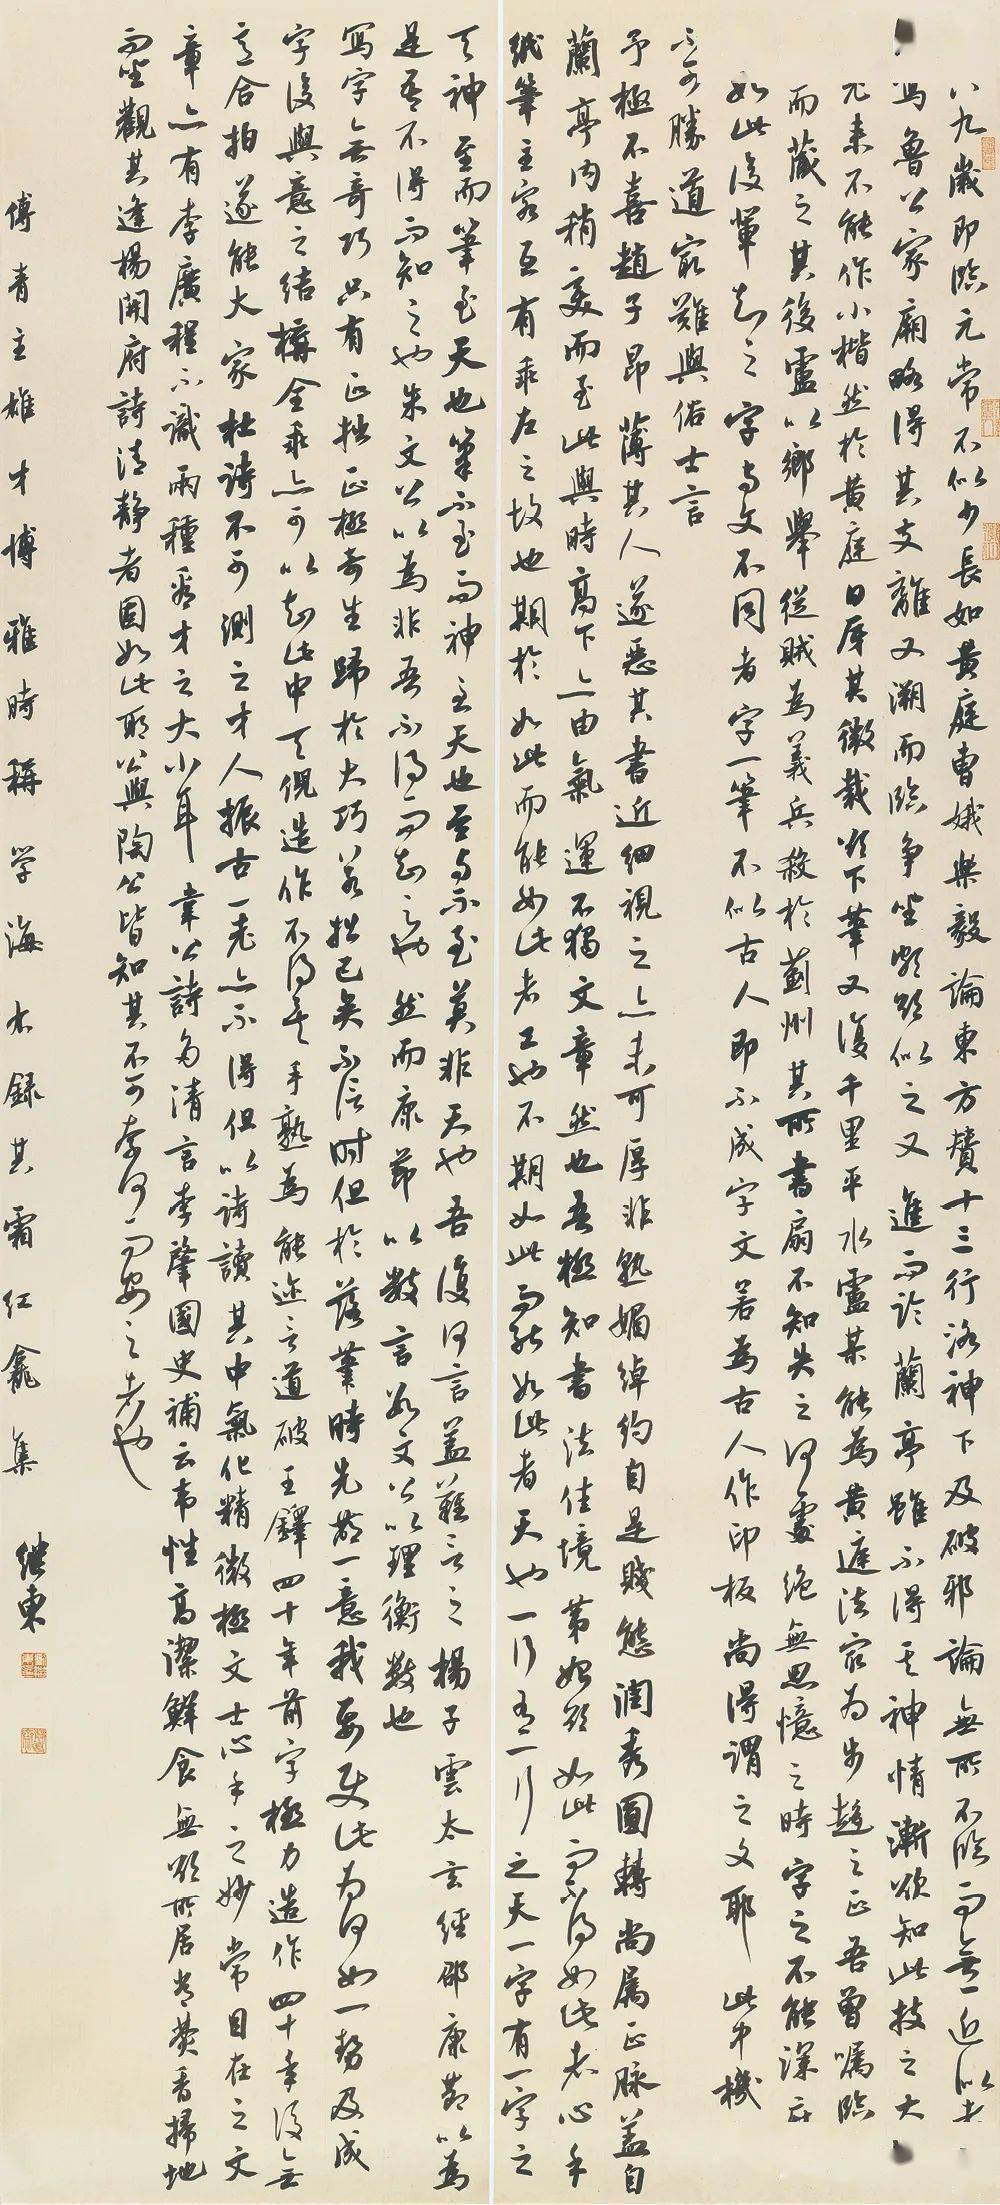 八九歲即臨元常不似少長如黃庭曹娥樂毅論東方贊十三行洛神下及破邪論無所不臨而無一近似者
馮魯公家廟略得其支離又溯而臨爭坐頗欲似之又進而臨蘭亭雖不得其神情漸欲知此技之大
凡束不能作小楷然於黃庭日厚其微裁欲下筆又復千里平水盧某能為黃庭法容為步趨之正吾曾囑臨
而藏之其後盧以鄉舉從賊為義兵殺於薊州其所書扇不知失之何處絕無思憶之時字之不能深於
如此後輩知之字與文不同者字一筆不似古人即不成字文若為古人作印板尚得謂之文耶此中機
不可勝道最難與俗士言
予極不喜趙子昂薄其人遂惡其書近細視之亦未可厚非熟媚綽約自是賤態潤秀圓轉尚屬正脈蓋自
蘭亭內稍變而至此與時高下亦由氣運不獨文章然也吾極知書法佳境第始欲如此而不得如此者心手
紙筆主客互有乖左之故也期於如此而能如此者工也不期如此而能如此者天也一行有一行之天一字有一字之
天神至而筆至天也筆不至而神至天也至與不至莫非天也吾復何言蓋難言之楊子雲太玄經邵康節以為
是吾不得而知之也朱文公以為非吾不得而知之也然而康節以數言如文公以理衡數也
寫字無奇巧只有正拙正極奇生歸於大巧若拙已矣不信時但於落筆時先萌一意我要使此為何如一勢及成
字後與意之結構全乖亦可以知此中天倪造作不得矣手熟為能迩言道破王鐸四十年前字極力造作四十年後無
意合拍遂能大家杜詩不可測之才人振古一老亦不得但以詩讀其中氣化精微極文士心手之妙常目在之文
章亦有李廣程不識兩種看才之大小耳韋公詩多清言李肇國史補云韋性高潔鮮食無欲所居常焚香掃地
而坐觀其逢楊開府詩清靜者固如此耶公與陶公皆知其不可奈何而安之者也
傅青主雄才博雅時稱學海亦錄其霜紅龕集 继东